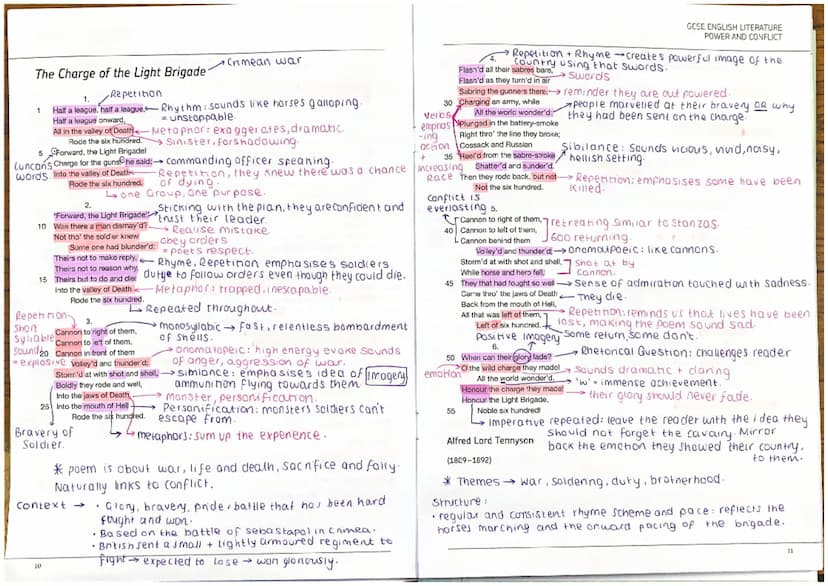 The Charge of the Light Brigade → Crimean war
1. Repetition
1 Half a league, half a league, ← Rhythm: sounds like horses galloping.
Half a league onward, = unstoppable.
All in the valley of Death ← Metaphor: exaggerates, dramatic
Rode the six hundred. Sinister, forshadowing.
5 'Forward, the Light Brigade!
Luncans words Charge for the guns!' he said: → commanding officer speaking.
Into the valley of Death ← Repetition, they knew there was a chance
Rode the six hundred. of dying.
one Group, one purpose.
2.
'Forward, the Light Brigade!' Sticking with the plan, they are confident and
10 Was there a man dismay'd? trust their leader.
Not tho' the soldier knew Realise mistake
Some one had blunder'd: obey orders
= poets respect.
Theirs not to make reply, ← Rhyme, Repetition emphasises soldiers
Theirs not to reason why, dutye to follow orders even though they could die.
15 Theirs but to do and die:
Into the valley of Death ← Metaphor: trapped, inescapable.
Rode the six hundred.
Repeated throughout.
Repetition short syllable sound = explosive
3. monosylabic → fast, relentless bombardment
Cannon to right of them, of shells.
Cannon to left of them,
20 Cannon in front of them Onomatopeic: high energy evoke sounds
Volley'd and thunder'd; of anger, aggression of war.
Storm'd at with shot and shell, → Sibilance: emphasise idea of Imagery
Boldly they rode and well, ammunition flying towards them
Into the jaws of Death, → monster, personification.
25 Into the mouth of Hell → Personification: monsters soldiers can't
Rode the six hundred. escape from.
Bravery of Soldier. metaphors: sum up the experience.
* poem is about war, life and death, sacrifice and folly.
Naturally links to conflict.
Context → • Glory, bravery, pride, battle that has been hard
fought and won.
• Based on the battle of sebastapol in crimea.
• British sent a small + lightly armoured regiment to
fight → expected to lose → won gloriously.
10
GCSE ENGLISH LITERATURE
POWER AND CONFLICT
4. Repetition + Rhyme → creates powerful image of the
Flash'd all their sabres bare, country using that swords.
Flash'd as they turn'd in air swords
Sabring the gunners there, → reminder they are out powered.
30 Charging an army, while people marvelled at their bravery OR why
All the world wonder'd: they had been sent on the charge.
Verbs empras -ing action + increasing Race
Plunged in the battery-smoke
Right thro' the line they broke;
Cossack and Russian
35 Reel'd from the sabre-stroke Sibilance: Sounds vicious, vivid, noisy,
Shatter'd and sunder'd. hellish setting.
Then they rode back, but not → Repetition: emphasises some have been
Not the six hundred. killed.
Conflict is everlasting 5.
Cannon to right of them, retreating similar to Stanza 3.
40 Cannon to left of them, 600 returning.
Cannon behind them
Volley'd and thunder'd; → onomatopoeic: like cannons.
Storm'd at with shot and shell, Shot at by
While horse and hero fell, cannon.
45 They that had fought so well → Sense of admiration touched with sadness.
Came thro' the jaws of Death ← They die.
Back from the mouth of Hell,
All that was left of them, Repetition: reminds us that lives have been
Left of six hundred. lost, making the poem sound sad.
positive imagery Some return, some don't.
6.
50 When can their glory fade? → Rhetorical Question: challenges reader
emotion O the wild charge they made! sounds dramatic + daring
All the world wonder'd. 'w' = immense achievement.
Honour the charge they made! their glory should never fade.
Honour the Light Brigade,
55 Noble six hundred!
Imperative repeated: leave the reader with the idea they
should not forget the cavalry. Mirror
Alfred Lord Tennyson back the emotion they showed their country,
(1809–1892) to them.
* Themes → war, soldering, duty, brotherhood.
Structure:
• regular and consistent rhyme scheme and pace: reflects the
horses marching and the onward pacing of the brigade.
11